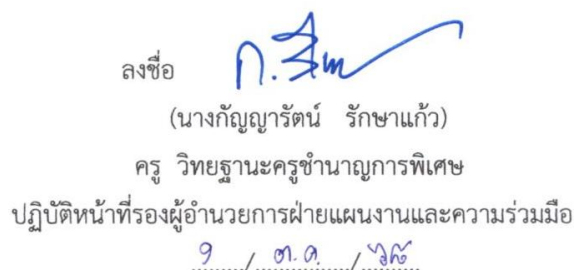 ลงชื่อ
(นางกัญญารัตน์ รักษาแก้ว)
ครู วิทยฐานะครูชำนาญการพิเศษ
ปฏิบัติหน้าที่รองผู้อำนวยการฝ่ายแผนงานและความร่วมมือ
/ ต.ค. /